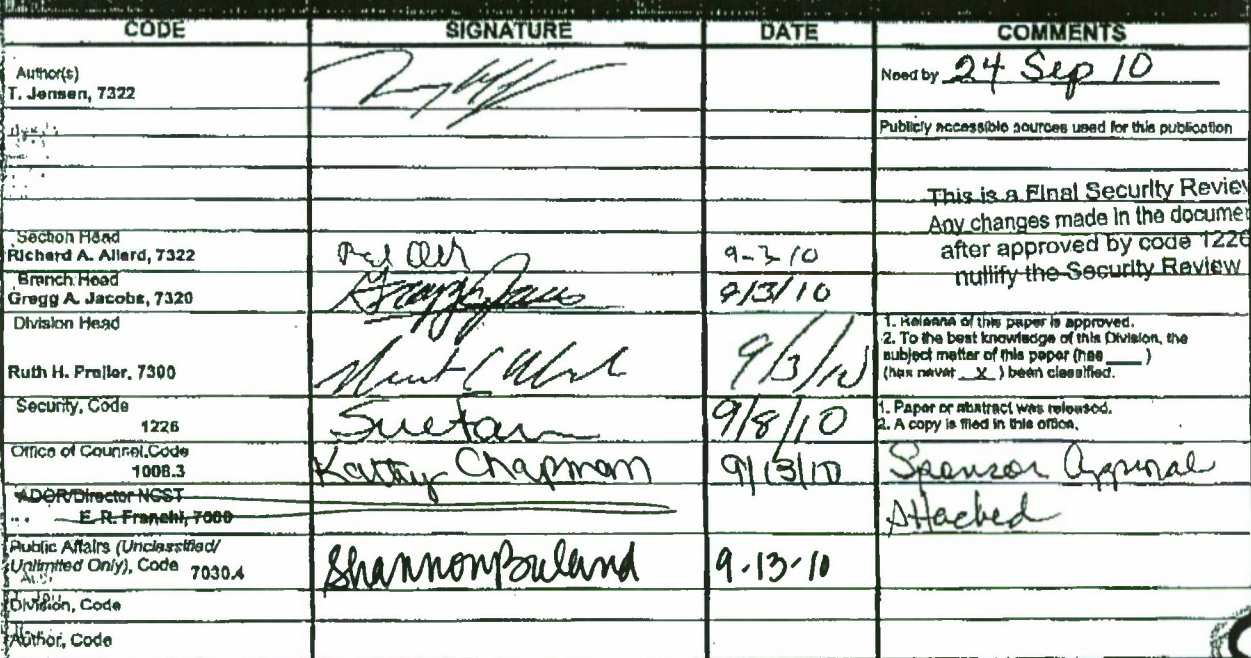 CODE SIGNATURE DATE COMMENTS
Author(s)
T. Jensen, 7322
Need by 24 Sep 10
Publicly accessible sources used for this publication
This is a Final Security Review
Any changes made in the documen
after approved by code 1226
nullify the Security Review
Section Head
Richard A. Allard, 7322 9-3-10
Branch Head
Gregg A. Jacobs, 7320 9/3/10
Division Head
Ruth H. Preller, 7300 9/3/10
1. Release of this paper is approved.
2. To the best knowledge of this Division, the
subject matter of this paper (has ____ )
(has never __x__ ) been classified.
Security, Code
1226 9/8/10
1. Paper or abstract was released.
2. A copy is filed in this office.
Office of Counsel,Code
1008.3 Kathy Chapman 9/13/10
Sponsor approval
attached
ADOR/Director NCST
E. R. Franchi, 7000
Public Affairs (Unclassified/
Unlimited Only), Code 7030.4 Shannon Breland 9-13-10
Division, Code
Author, Code